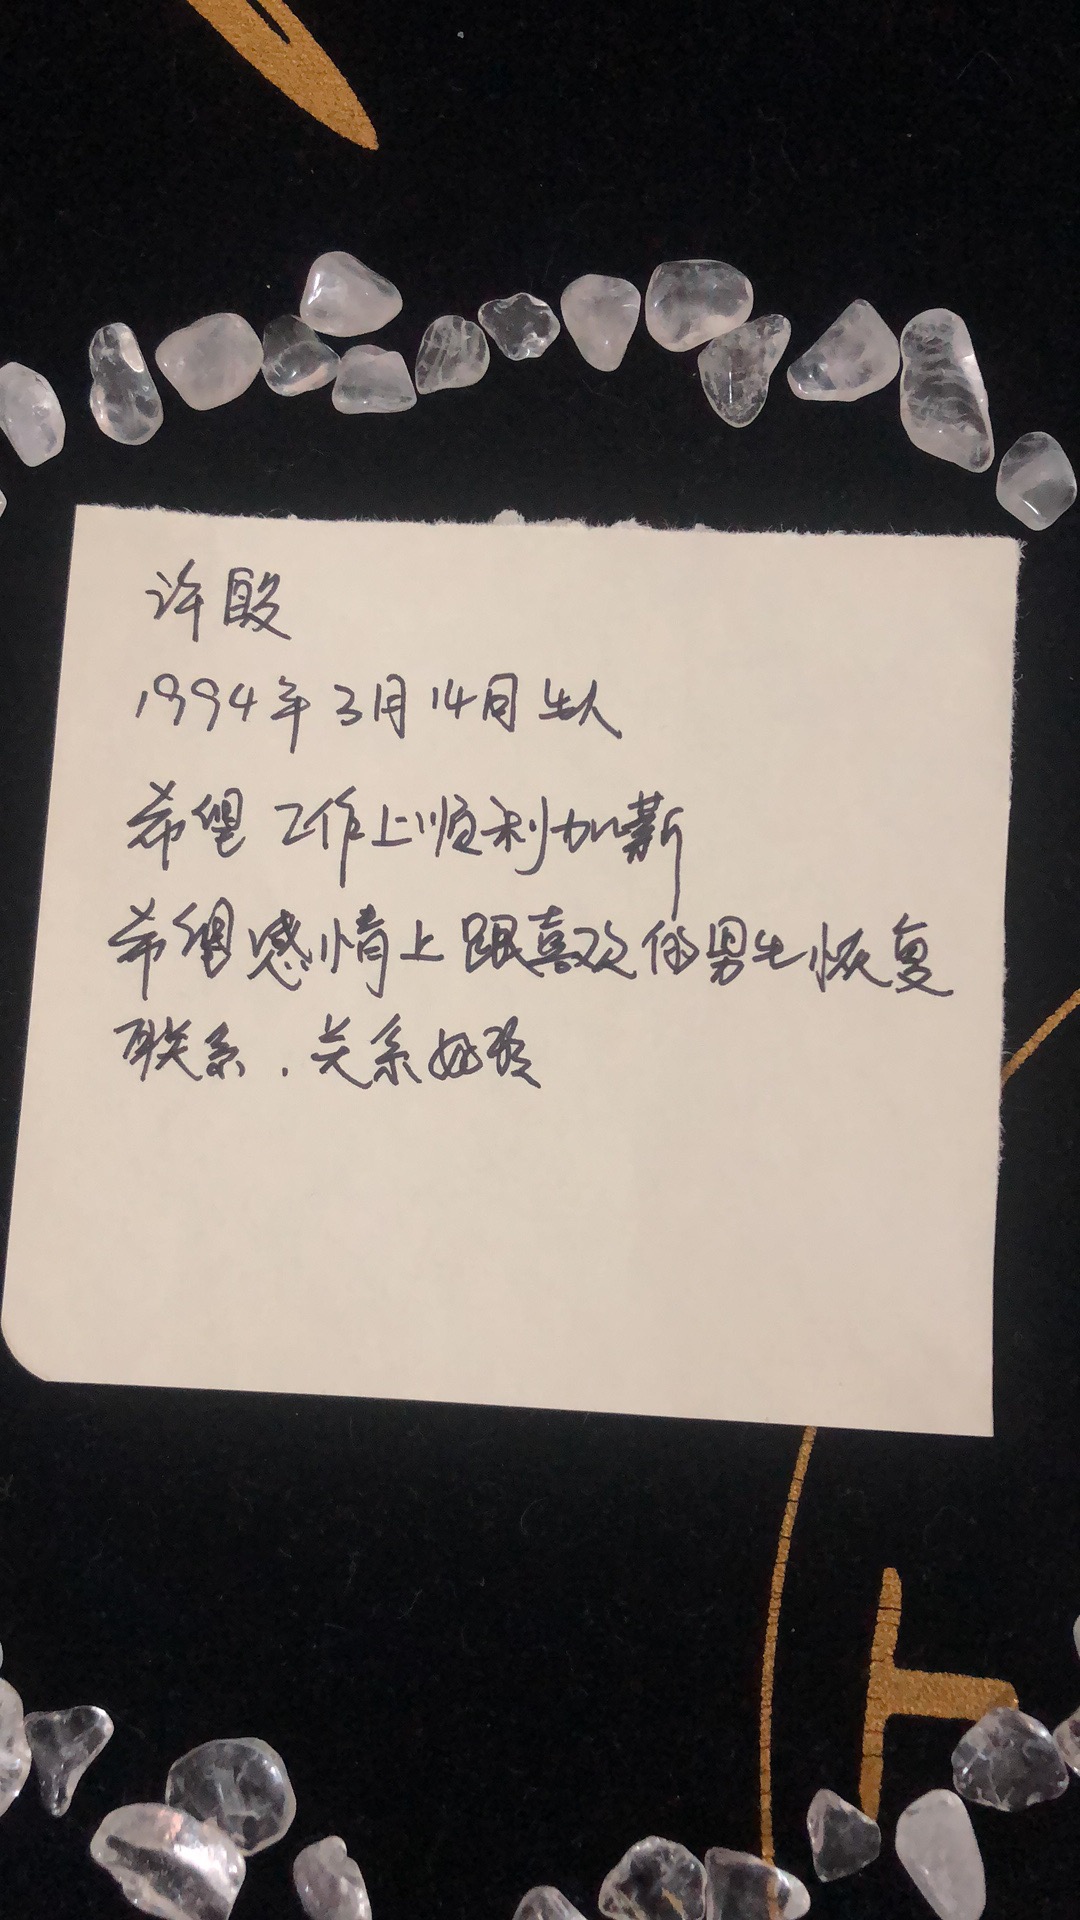 许殷
1994年3月14日生人
希望 工作上顺利加薪
希望感情上跟喜欢的男生恢复
联系.关系好